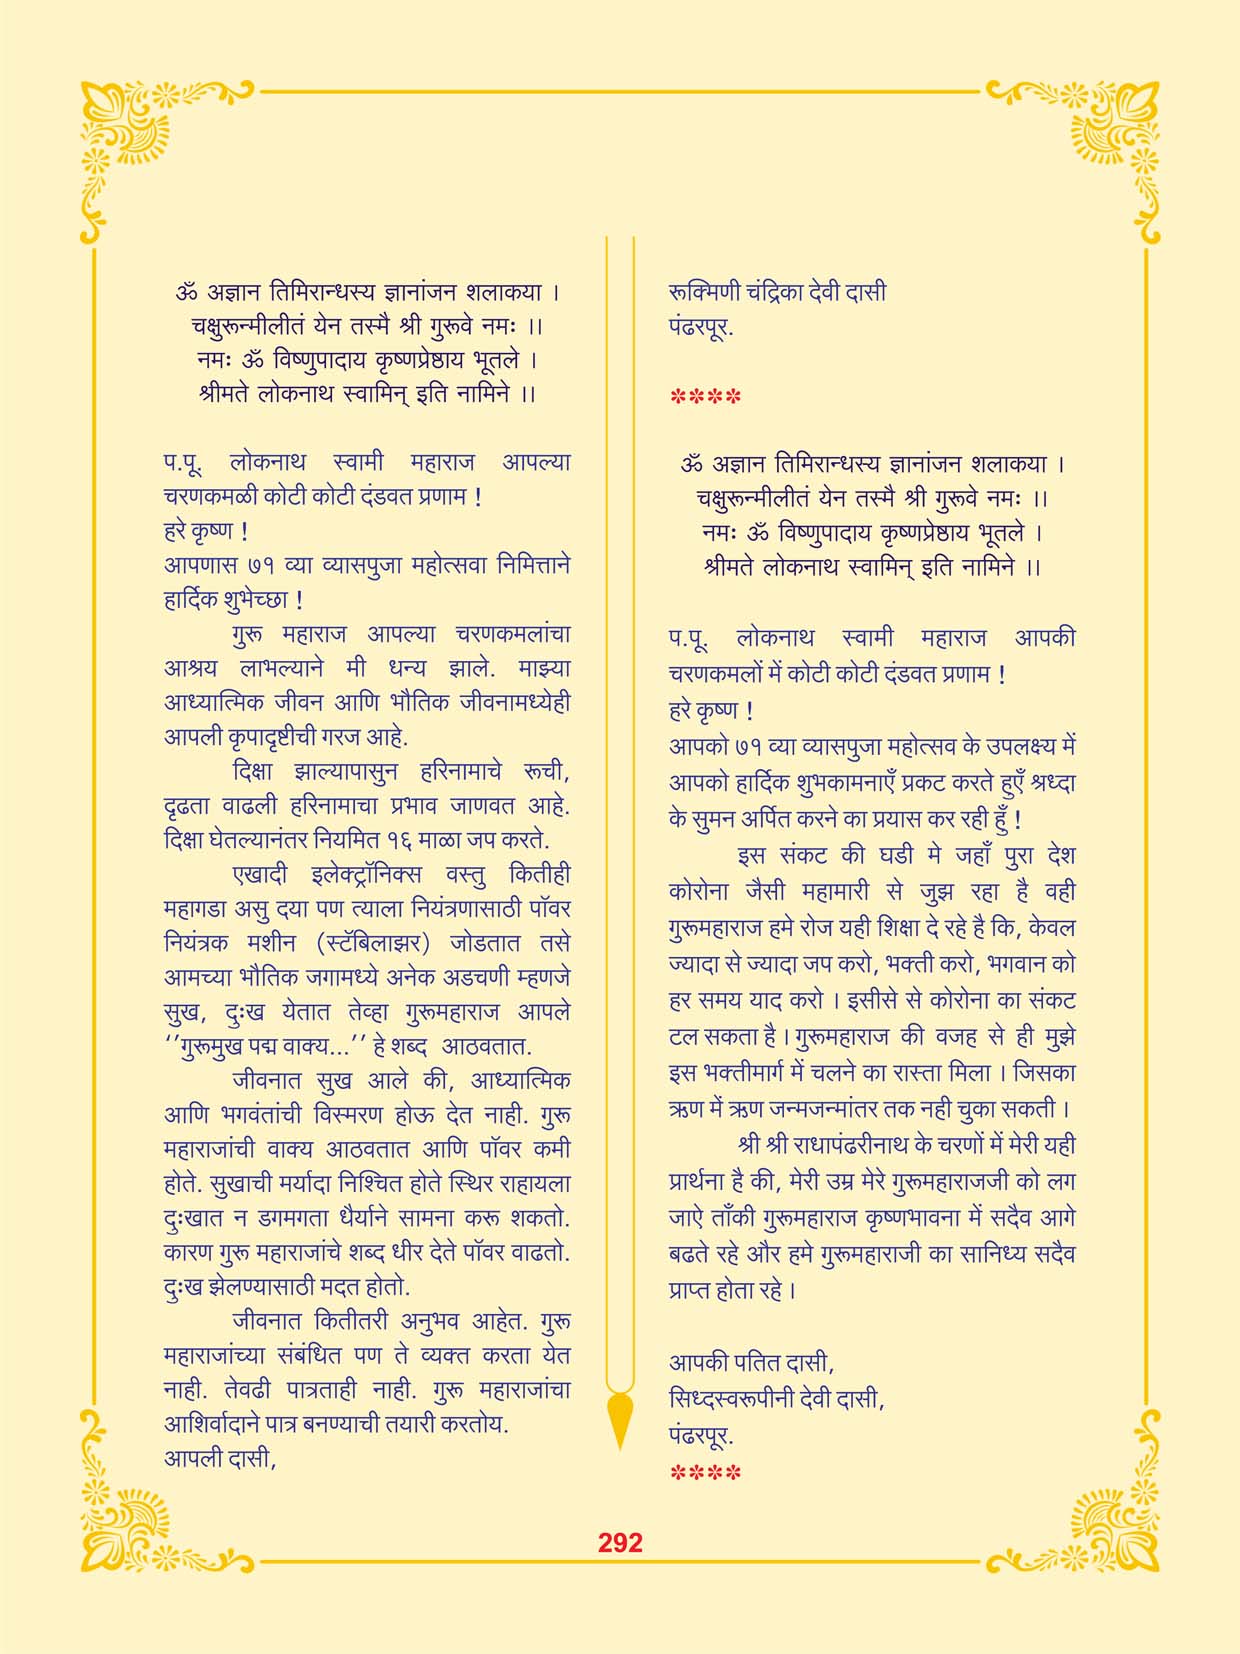 ॐ अज्ञान तिमिरान्धस्य ज्ञानांजन शलाकया ।
चक्षुरून्मीलीतं येन तस्मै श्री गुरूवे नमः ।।
नमः ॐ विष्णुपादाय कृष्णप्रेष्ठाय भूतले ।
श्रीमते लोकनाथ स्वामिन् इति नामिने ।।
प.पू. लोकनाथ स्वामी महाराज आपल्या
चरणकमळी कोटी कोटी दंडवत प्रणाम !
हरे कृष्ण !
आपणास ७१ व्या व्यासपुजा महोत्सवा निमित्ताने
हार्दिक शुभेच्छा !
गुरू महाराज आपल्या चरणकमलांचा
आश्रय लाभल्याने मी धन्य झाले. माझ्या
आध्यात्मिक जीवन आणि भौतिक जीवनामध्येही
आपली कृपादृष्टीची गरज आहे.
दिक्षा झाल्यापासुन हरिनामाचे रूची,
दृढता वाढली हरिनामाचा प्रभाव जाणवत आहे.
दिक्षा घेतल्यानंतर नियमित १६ माळा जप करते.
एखादी इलेक्ट्रॉनिक्स वस्तु कितीही
महागडा असु दया पण त्याला नियंत्रणासाठी पॉवर
नियंत्रक मशीन (स्टॅबिलाझर) जोडतात तसे
आमच्या भौतिक जगामध्ये अनेक अडचणी म्हणजे
सुख, दुःख येतात तेव्हा गुरूमहाराज आपले
‘’गुरूमुख पद्म वाक्य...’’ हे शब्द आठवतात.
जीवनात सुख आले की, आध्यात्मिक
आणि भगवंतांची विस्मरण होऊ देत नाही. गुरू
महाराजांची वाक्य आठवतात आणि पॉवर कमी
होते. सुखाची मर्यादा निश्चित होते स्थिर राहायला
दुःखात न डगमगता धैर्याने सामना करू शकतो.
कारण गुरू महाराजांचे शब्द धीर देते पॉवर वाढतो.
दुःख झेलण्यासाठी मदत होतो.
जीवनात कितीतरी अनुभव आहेत. गुरू
महाराजांच्या संबंधित पण ते व्यक्त करता येत
नाही. तेवढी पात्रताही नाही. गुरू महाराजांचा
आशिर्वादाने पात्र बनण्याची तयारी करतोय.
आपली दासी,
रूक्मिणी चंद्रिका देवी दासी
पंढरपूर.
****
ॐ अज्ञान तिमिरान्धस्य ज्ञानांजन शलाकया ।
चक्षुरून्मीलीतं येन तस्मै श्री गुरूवे नमः ।।
नमः ॐ विष्णुपादाय कृष्णप्रेष्ठाय भूतले ।
श्रीमते लोकनाथ स्वामिन् इति नामिने ।।
प.पू. लोकनाथ स्वामी महाराज आपकी
चरणकमलों में कोटी कोटी दंडवत प्रणाम !
हरे कृष्ण !
आपको ७१ व्या व्यासपुजा महोत्सव के उपलक्ष्य में
आपको हार्दिक शुभकामनाएँ प्रकट करते हुएँ श्रध्दा
के सुमन अर्पित करने का प्रयास कर रही हुँ !
इस संकट की घडी मे जहाँ पुरा देश
कोरोना जैसी महामारी से जुझ रहा है वही
गुरूमहाराज हमे रोज यही शिक्षा दे रहे है कि, केवल
ज्यादा से ज्यादा जप करो, भक्ती करो, भगवान को
हर समय याद करो । इसीसे से कोरोना का संकट
टल सकता है । गुरूमहाराज की वजह से ही मुझे
इस भक्तीमार्ग में चलने का रास्ता मिला । जिसका
ऋण में ऋण जन्मजन्मांतर तक नही चुका सकती ।
श्री श्री राधापंढरीनाथ के चरणों में मेरी यही
प्रार्थना है की, मेरी उम्र मेरे गुरूमहाराजजी को लग
जाऐ ताँकी गुरूमहाराज कृष्णभावना में सदैव आगे
बढते रहे और हमे गुरूमहाराजी का सानिध्य सदैव
प्राप्त होता रहे ।
आपकी पतित दासी,
सिध्दस्वरूपीनी देवी दासी,
पंढरपूर.
****
292